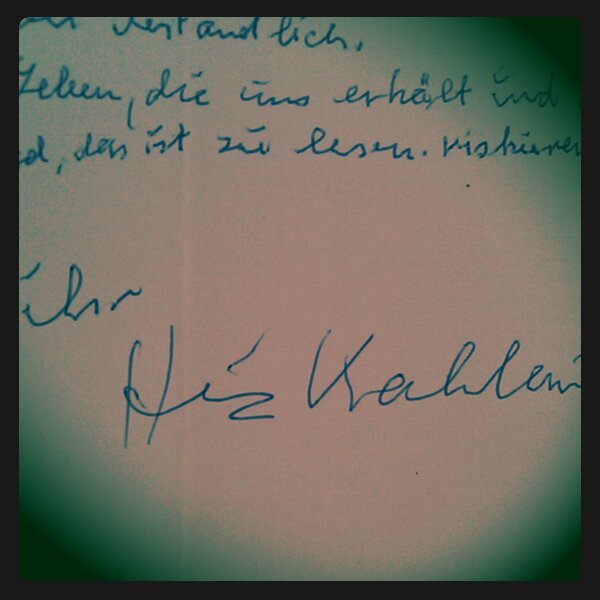 verständlich.
Leben, die uns erhält und
d, das ist zu lesen. riskieren
ihr
Heinz Kahlau